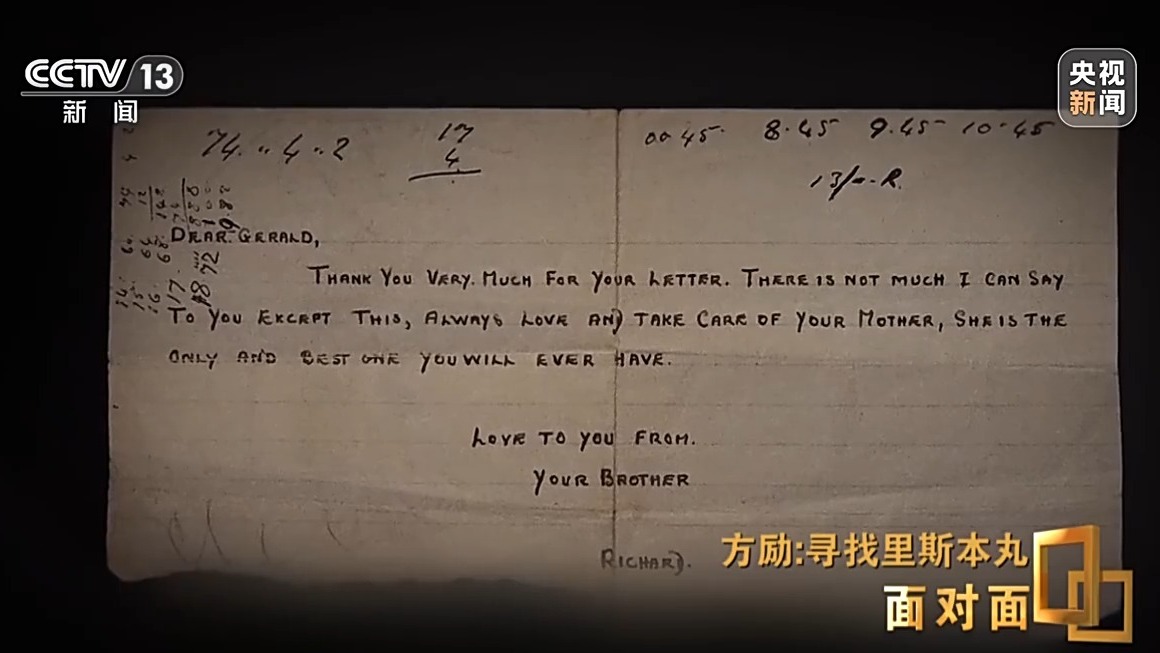 CCTV 13
新闻
央视
新闻
74. " 4 " 2
17
4
8.45 9.45 10.45
DEAR. GERALD,
THANK YOU VERY. MUCH FOR YOUR LETTER. THERE IS NOT MUCH I CAN SAY
TO YOU EXCEPT THIS, ALWAYS LOVE AND TAKE CARE OF YOUR MOTHER, SHE IS THE
ONLY AND BEST ONE YOU WILL EVER HAVE.
LOVE TO YOU FROM.
YOUR BROTHER
RICHARD.
方励:寻找里斯本丸
面对面